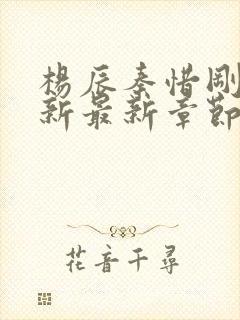 杨辰秦惜刚
新最新章节
花音千寻